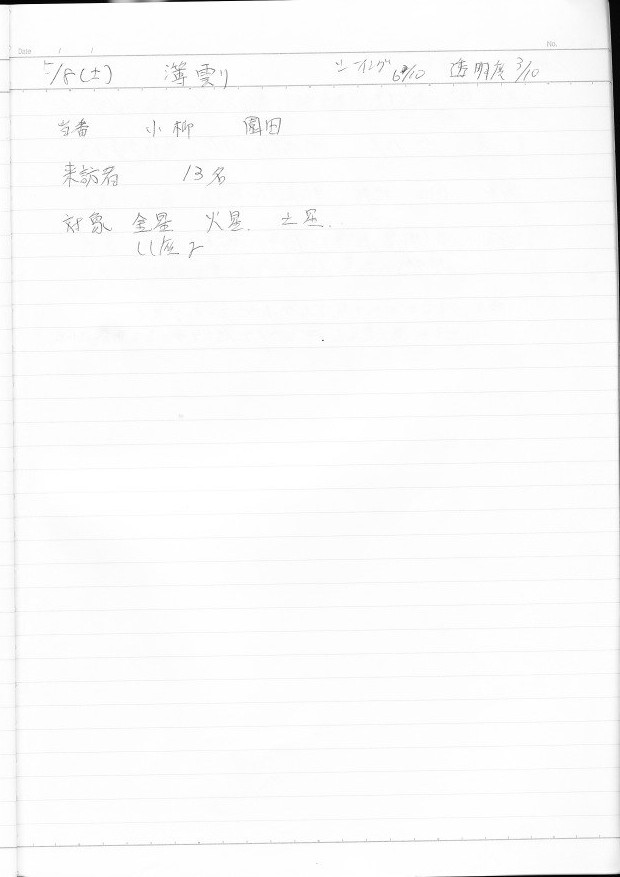 Date / / No.
5/8(土) 薄雲り シーイング 6/10 透明度 3/10
当番 小柳 園田
来訪者 13名
対象 金星 火星. 土星.
しし座γ